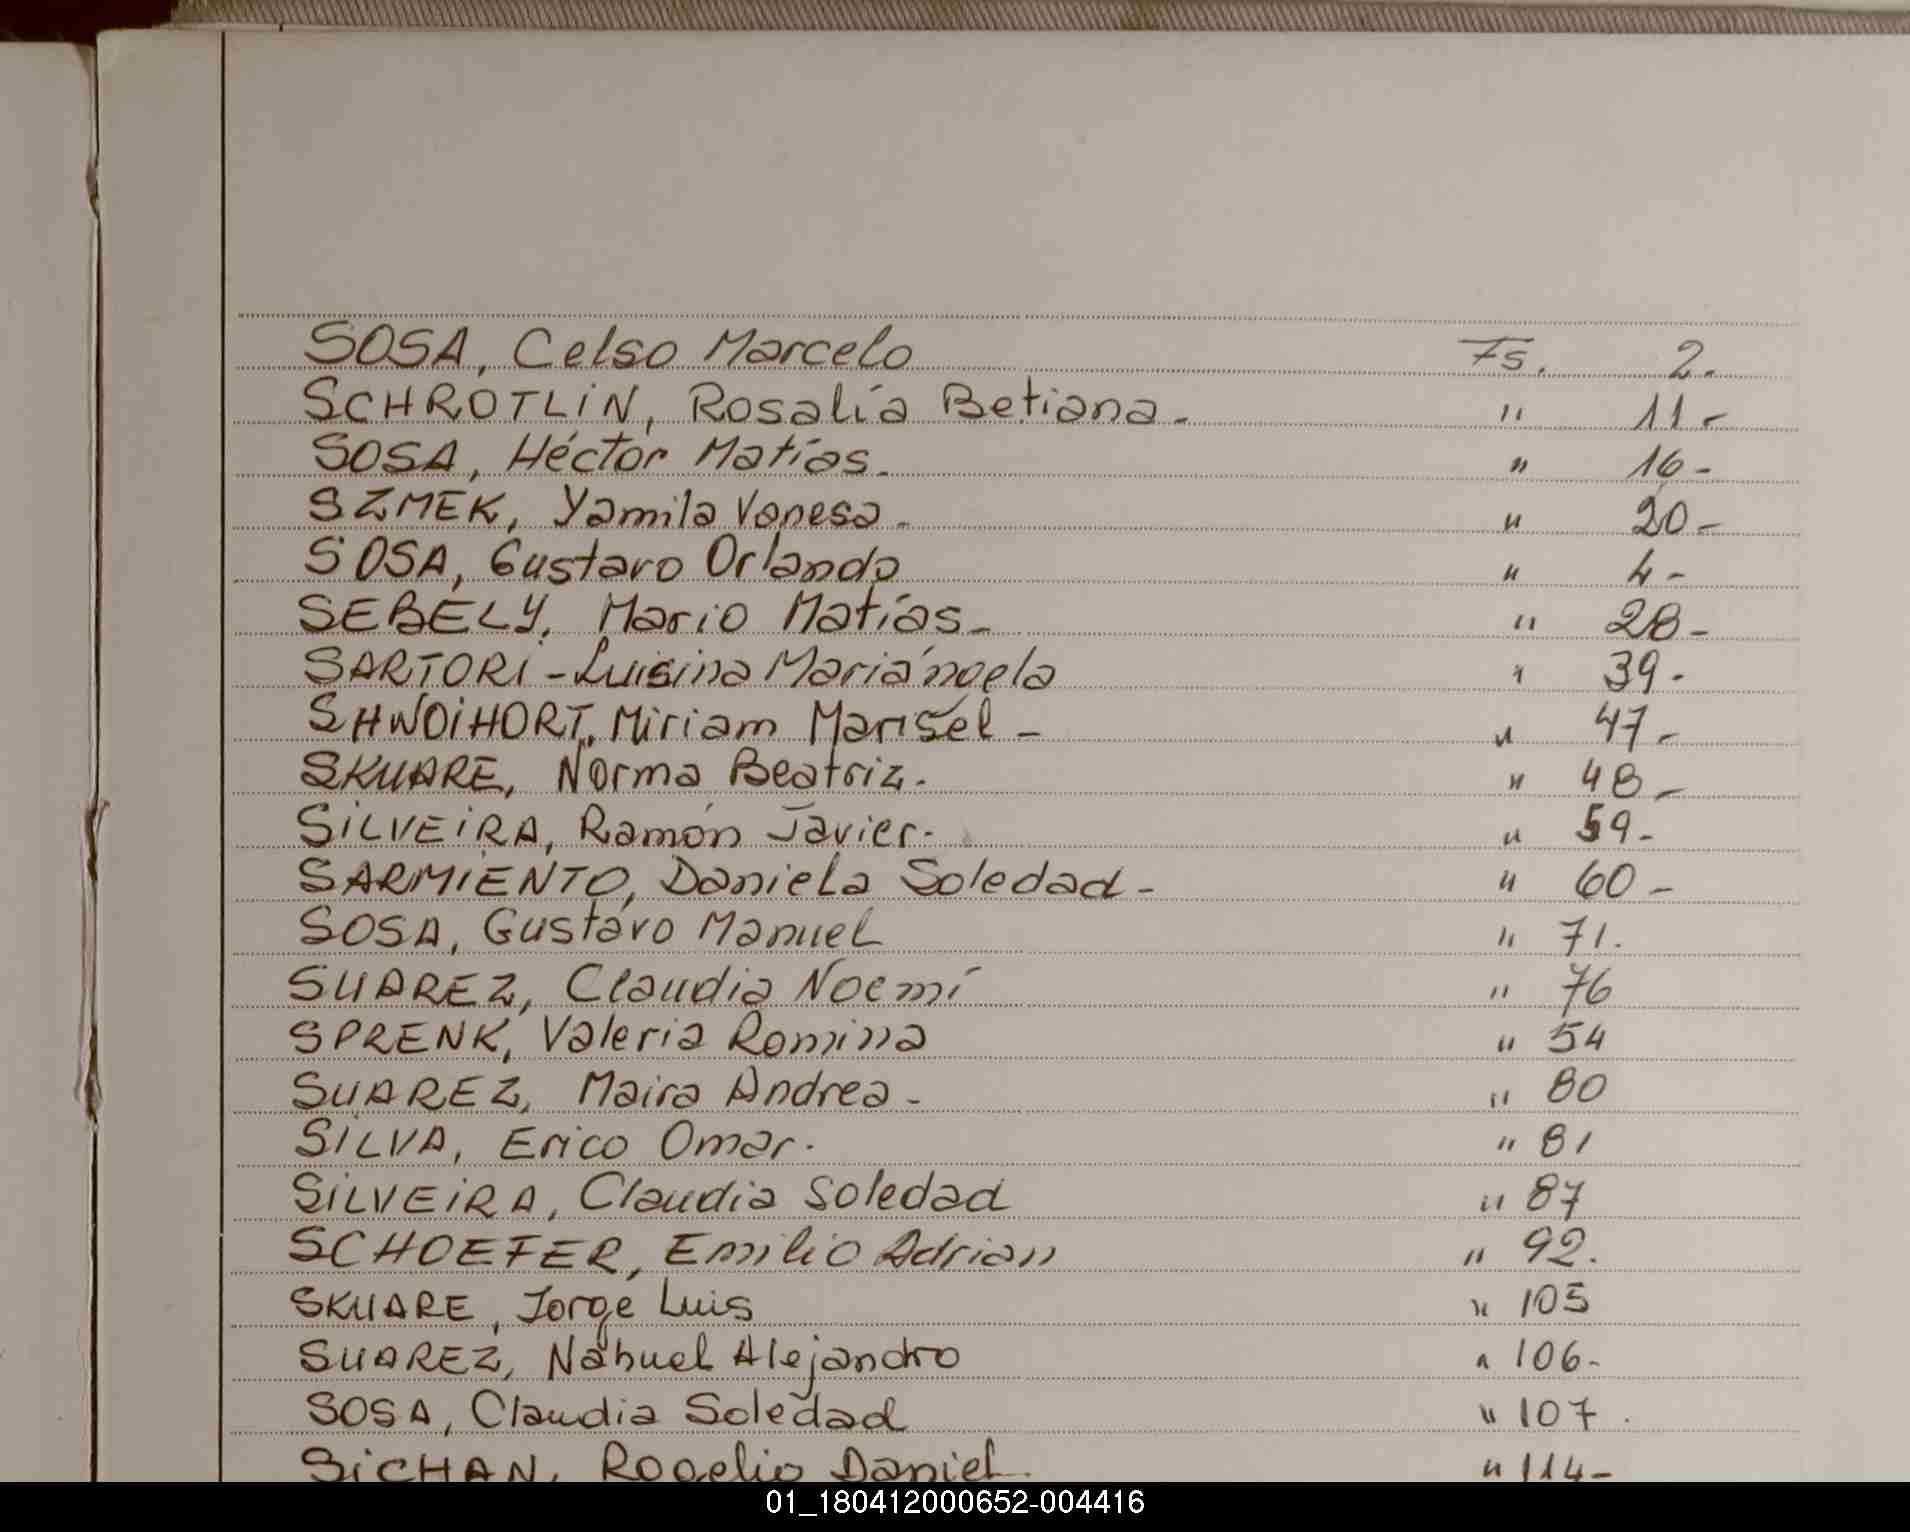 SOSA, Celso Marcelo Fs. 2.
SCHROTLIN, Rosalía Betiana - " 11 -
SOSA, Héctor Matías - " 16 -
SZMEK, Yamila Vanesa - " 20 -
SOSA, Gustavo Orlando " 4 -
SEBELY, Mario Matías - " 28 -
SARTORI - Luisina Mariángela " 39 -
SHWOIHORT, Miriam Marisel - " 47 -
SKUARE, Norma Beatriz - " 48 -
SILVEIRA, Ramón Javier - " 59 -
SARMIENTO, Daniela Soledad - " 60 -
SOSA, Gustavo Manuel " 71.
SUAREZ, Claudia Noemí " 76
SPRENK, Valeria Romina " 54
SUAREZ, Maira Andrea - " 80
SILVA, Erico Omar. " 81
SILVEIRA, Claudia Soledad " 87
SCHOEFER, Emilio Adrian " 92.
SKUARE, Jorge Luis " 105
SUAREZ, Nahuel Alejandro " 106 -
SOSA, Claudia Soledad " 107.
SICHAN, Rogelio Daniel. " 114 -
01_180412000652-004416